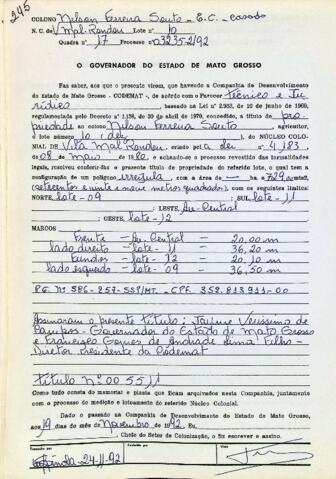 245
COLONO Nelson Ferreira Santo - E.C. casado
N. C. de V. Mal. Rondon Lote 10
Quadra n.º 17 Processo n.º 3235-2/92
O GOVERNADOR DO ESTADO DE MATO GROSSO
Faz saber, aos que o presente virem, que havendo a Companhia de Desenvolvimento
do Estado de Mato Grosso - CODEMAT -, de acôrdo com o Parecer técnico e Ju
rídico, baseada na Lei nº 2.983, de 10 de junho de 1969,
regulamentada pelo Decreto n.º 1.138, de 30 de abril de 1970, concedido, a título de pro
priedade ao colono Nelson Ferreira Santo, agricultor,
o lote n.º 10 (dez), do NÚCLEO COLO-
NIAL DE Vila Mal. Rondon, criado pela Lei nº 4.183,
de 08 de maio de 1980, e achando-se o processo revestido das formalidades
legais, resolveu conferir-lhe o presente título de propriedade do referido lote, o qual tem a
configuração de um polígono irregular, com a área de — ha e 729 metros²,
(setecentos e vinte e nove metros quadrados), com os seguintes limites:
NORTE, lote-09; SUL, lote-11
LESTE, Av. Central
OESTE, lote-12
MARCOS
Frente - Av. Central — 20,00 m
lado direito - lote - 11 — 36,20 m
fundos - lote - 12 — 20,10 m
lado esquerdo - lote - 09 — 36,50 m
RG. Nº 386-257-SSP/MT. - CPF. 352.813.911-00
Assinaram o presente título: Jayme Verissimo de
Campos - Governador do Estado de Mato Grosso
e Francisco Gomes de Andrade Lima Filho -
Diretor Presidente da Codemat
título Nº 00 55 11
Como tudo consta do memorial e planta que ficam arquivados nesta Companhia, juntamente
com o processo de medição e loteamento do referido Núcleo Colonial.
Dado e passado na Companhia de Desenvolvimento do Estado de Mato Grosso,
aos 19 dias do mês de Novembro de 1992. Eu,
, Chefe do Setor de Colonização, o fiz escrever e assino.
24-11-92
Visto